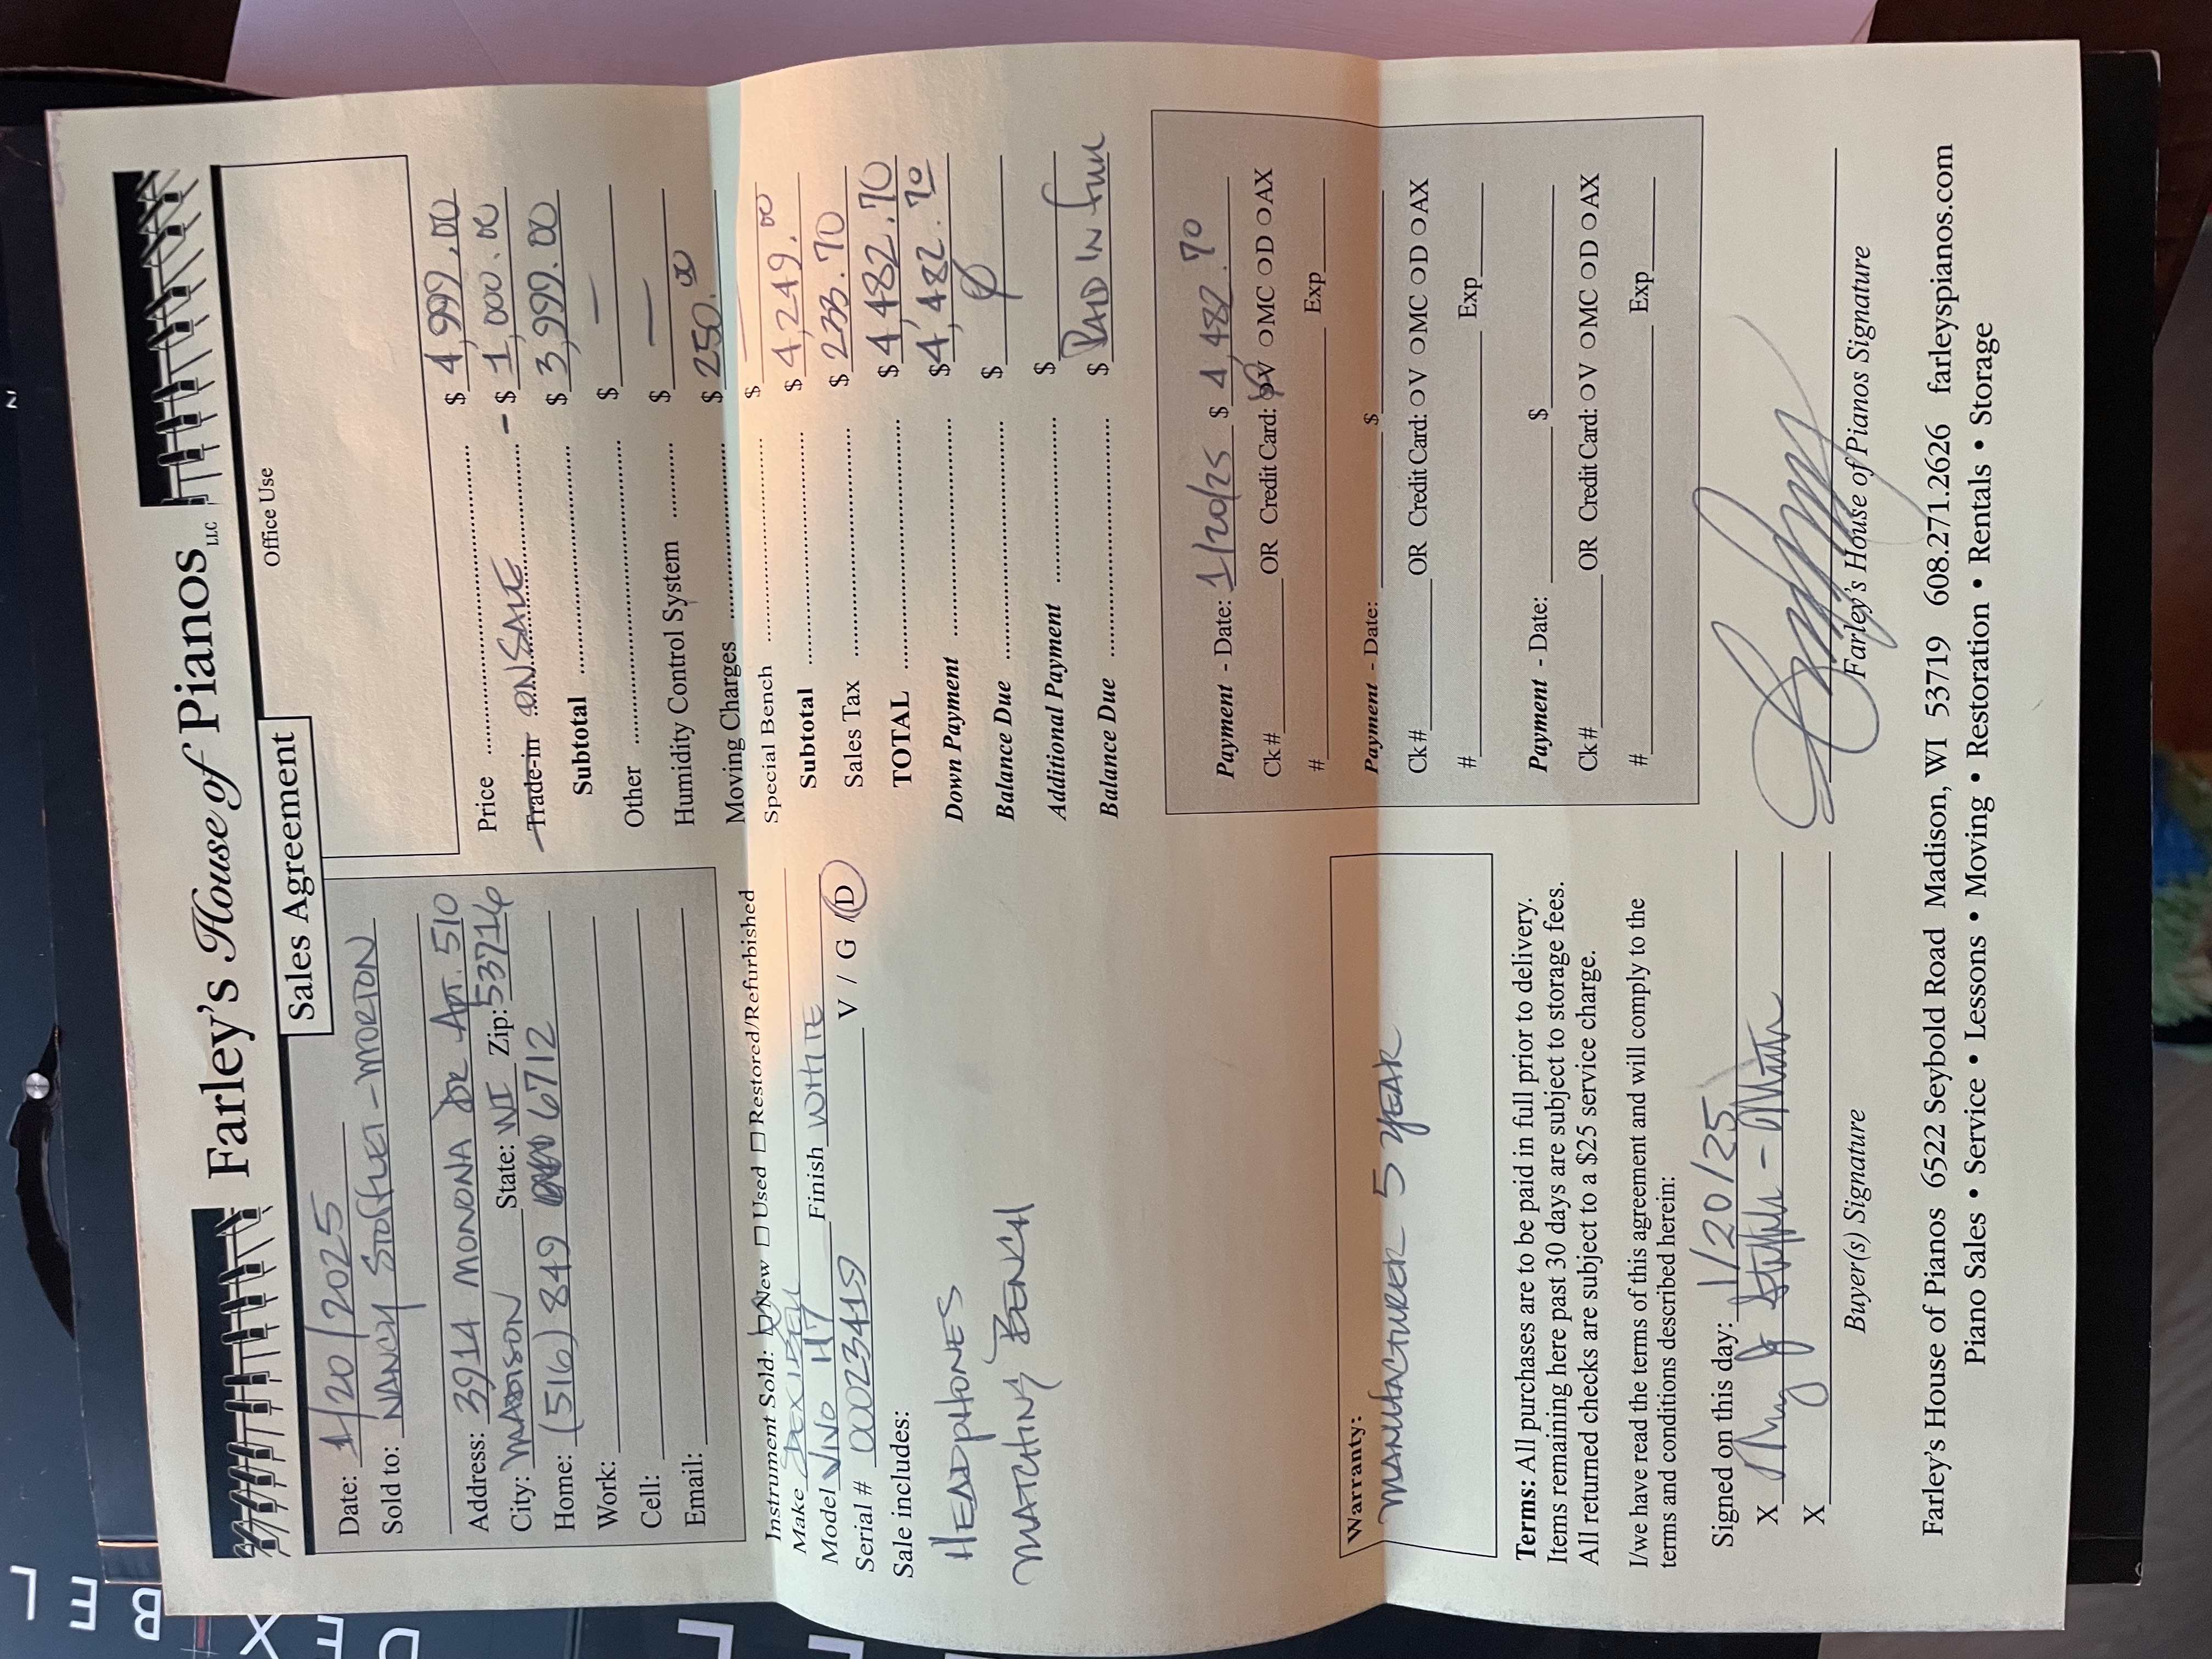 Farley's House of Pianos LLC
Sales Agreement
Office Use
Date: 1/20/2025
Sold to: NANCY STOFFLET-MORTON
Address: 3914 MONONA DR APT. 510
City: MADISON State: WI Zip: 53716
Home: (516) 849 6712
Work:
Cell:
Email:
Price $ 4,999.00
Trade-in ON SALE - $ 1,000.00
Subtotal $ 3,999.00
Other $ —
Humidity Control System $ —
Moving Charges $ 250.00
Special Bench $ —
Subtotal $ 4,249.00
Sales Tax $ 233.70
TOTAL $ 4,482.70
Down Payment $ 4,482.70
Balance Due $ Ø
Additional Payment $
Balance Due $ PAID IN FULL
Instrument Sold: New Used Restored/Refurbished
Make DEXIBELL
Model VIVO H7 Finish WHITE
Serial # 00023419 V / G / D
Sale includes:
HEADPHONES
MATCHING BENCH
Payment - Date: 1/20/25 $ 4,482.70
Ck# OR Credit Card: V MC D AX
# Exp
Payment - Date: $
Ck# OR Credit Card: V MC D AX
# Exp
Payment - Date: $
Ck# OR Credit Card: V MC D AX
# Exp
Warranty:
MANUFACTURER 5 YEAR
Terms: All purchases are to be paid in full prior to delivery.
Items remaining here past 30 days are subject to storage fees.
All returned checks are subject to a $25 service charge.
I/we have read the terms of this agreement and will comply to the
terms and conditions described herein:
Signed on this day: 1/20/25
X
X
Buyer(s) Signature
Farley's House of Pianos Signature
Farley's House of Pianos 6522 Seybold Road Madison, WI 53719 608.271.2626 farleyspianos.com
Piano Sales • Service • Lessons • Moving • Restoration • Rentals • Storage
DEXIBELL